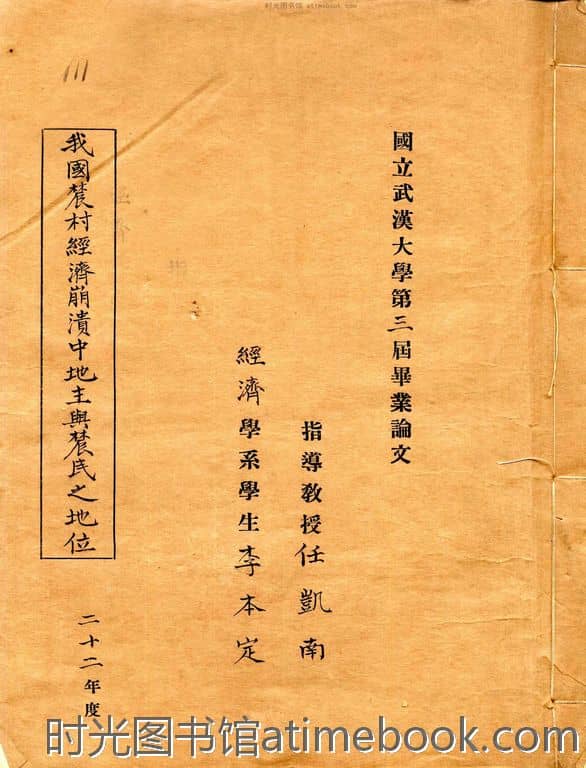 时光图书馆 atimebook.com
國立武漢大學第三屆畢業論文
指導教授任凱南
經濟學系學生李本定
我國農村經濟崩潰中地主與農民之地位
二十二年度
时光图书馆atimebook.com